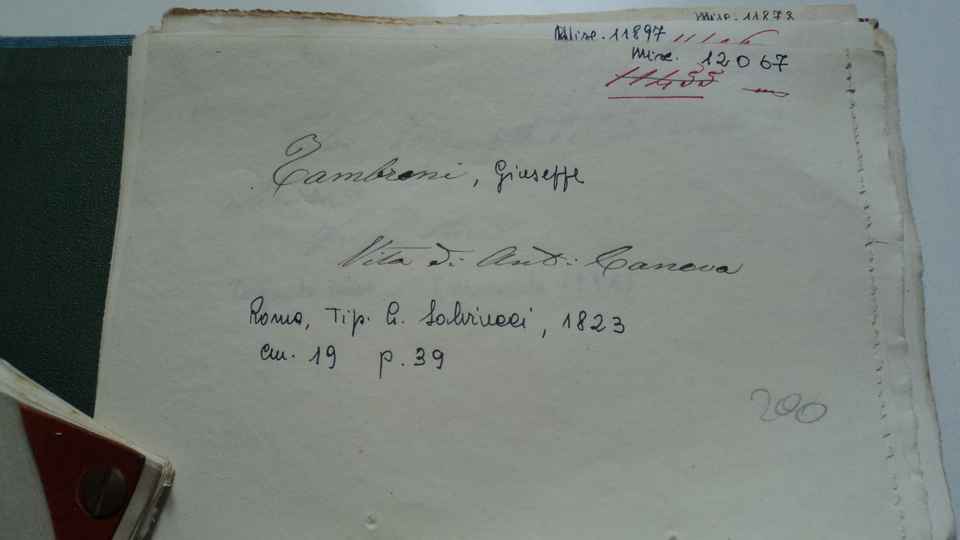 Misc. 11873
Misc. 11897
Misc. 12067
Tambroni, Giuseppe
Vita di Ant: Canova
Roma, Tip. G. Salviucci, 1823
cm. 19 p. 39
200